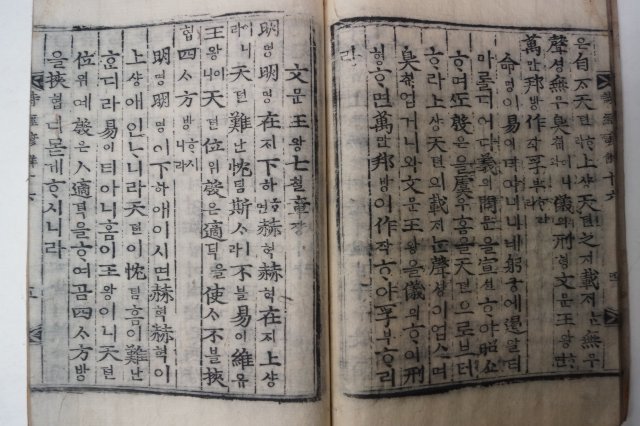 은自ᄌᆞ天텬ᄒᆞ라上샹天텬之지載ᄌᆡᄂᆞᆫ無무
聲셩無무臭ᄎᆔ어니와儀의刑형文문王왕
萬만邦방作작孚부ᄒᆞ리라
命명이易이티아니니네躬궁애遏알티
마롤디어다義의問문을宣션ᄒᆞ야昭쇼
ᄒᆞ며또殷은을虞우홈을天텬으로브터
ᄒᆞ라上샹天텬의載ᄌᆡᄂᆞᆫ聲셩이업스며
臭ᄎᆔ업거니와文문王왕을儀의ᄒᆞ야刑
형ᄒᆞ면萬만邦방이作작ᄒᆞ야孚부ᄒᆞ리
라
詩經諺解十六 四
詩經諺解十六 五
文문王왕七칠章쟝
明명明명在ᄌᆡ下하ᄒᆞ면赫혁赫혁在ᄌᆡ上샹
이니라天텬難난忱팀斯ᄉᆞ라不블易이維유
王왕이니天텬位위殷은適뎍을使ᄉᆞ不블挾
협四ᄉᆞ方방ᄒᆞ시니라
明명明명이下하애이시면赫혁赫혁이
上샹애인ᄂᆞ니라天텬이忱팀홈이難난
ᄒᆞ디라易이티아니홈이王왕이니天텬
位위예殷은人適뎍을ᄒᆞ여곰四ᄉᆞ方방
을挾협디몯게ᄒᆞ시니라